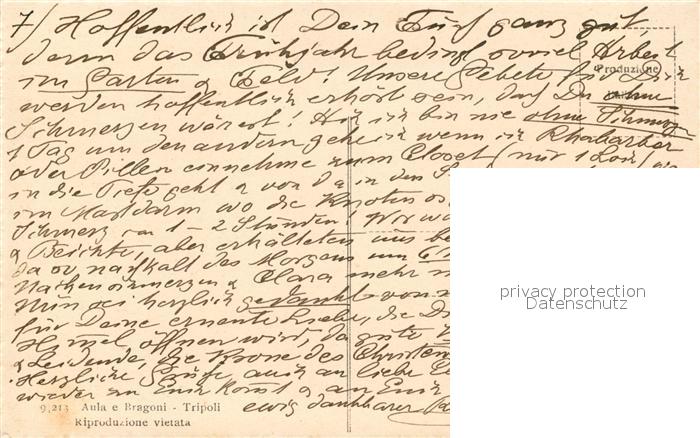 7/ Hoffentlich ist Dein Fuß ganz gut
denn das Frühjahr bedingt soviel Arbeit
im Garten & Feld! Unsere Gebete für Dich
werden hoffentlich erhört sein, daß Du ohne
Schmerzen wärest! Ach ich bin nie ohne Schmerz
1 Tag um den andern gehe ich wenn ich Rhabarber
oder Pillen einnehme zum Closet (nur 1
in die Tiefe geht & von da in den
im Mastdarm wo die Knoten
Schmerz von 1-2 Stunden! Wir
& Beichte, aber erkälteten uns
da so naßkalt des Morgens um
Nackenschmerzen & Clara mehr
Nun sei herzlich gedankt von
für Deine erneute Liebe, die
Himmel öffnen wird, da gute
& Leidende, die Krone des Christen
Herzliche Grüße auch an liebe
wieder zu Euch kommt & an Euch
ewig dankbarer
Produzione
9,213 Aula e Bragoni - Tripoli
Riproduzione vietata
privacy protection
Datenschutz